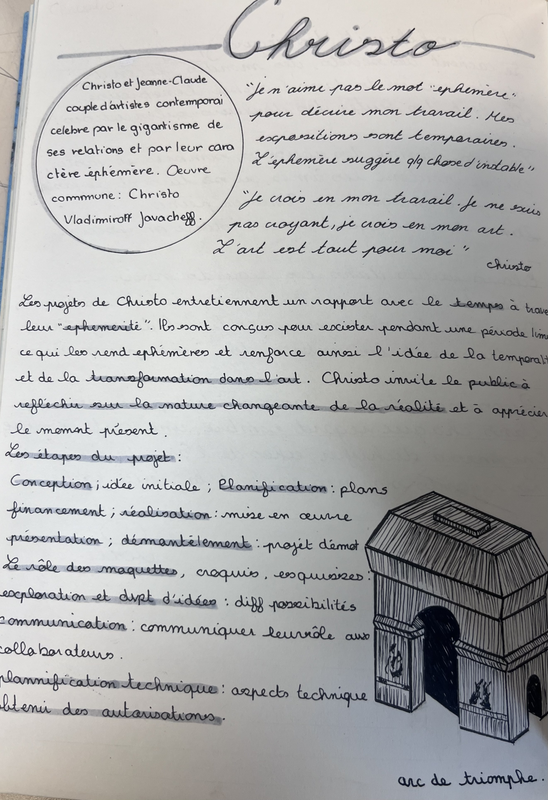 Christo
Christo et Jeanne-Claude
couple d'artistes contemporai
celebre par le gigantisme de
ses relations et par leur cara
ctère éphémère. Oeuvre
commune : Christo
Vladimiroff Javacheff.
"Je n'aime pas le mot "ephémère"
pour décrire mon travail. Mes
expositions sont temporaires.
L'ephémère suggère q/q chose d'instable"
"Je crois en mon travail. Je ne suis
pas croyant, je crois en mon art.
L'art est tout pour moi"
christo
Les projets de Christo entretiennent un rapport avec le temps à trave
leur "ephemerité". Ils sont conçus pour excister pendant une période lim
ce qui les rend ephémères et renforce ainsi l'idée de la temporalit
et de la transformation dans l'art. Christo invite le public à
refléchir sur la nature changeante de la réalité et à apprécier
le moment présent.
Les étapes du projet :
Conception ; idée initiale ; Planification : plans
financement ; réalisation : mise en œuvre
présentation ; démantèlement : projet démot
Le rôle des maquettes, croquis, esquisses :
exploration et dvpt d'idées : diff possibilités
communication : communiquer leur rôle aux
collaborateurs.
plannification technique : aspects technique
obtenir des autorisations.
arc de triomphe.